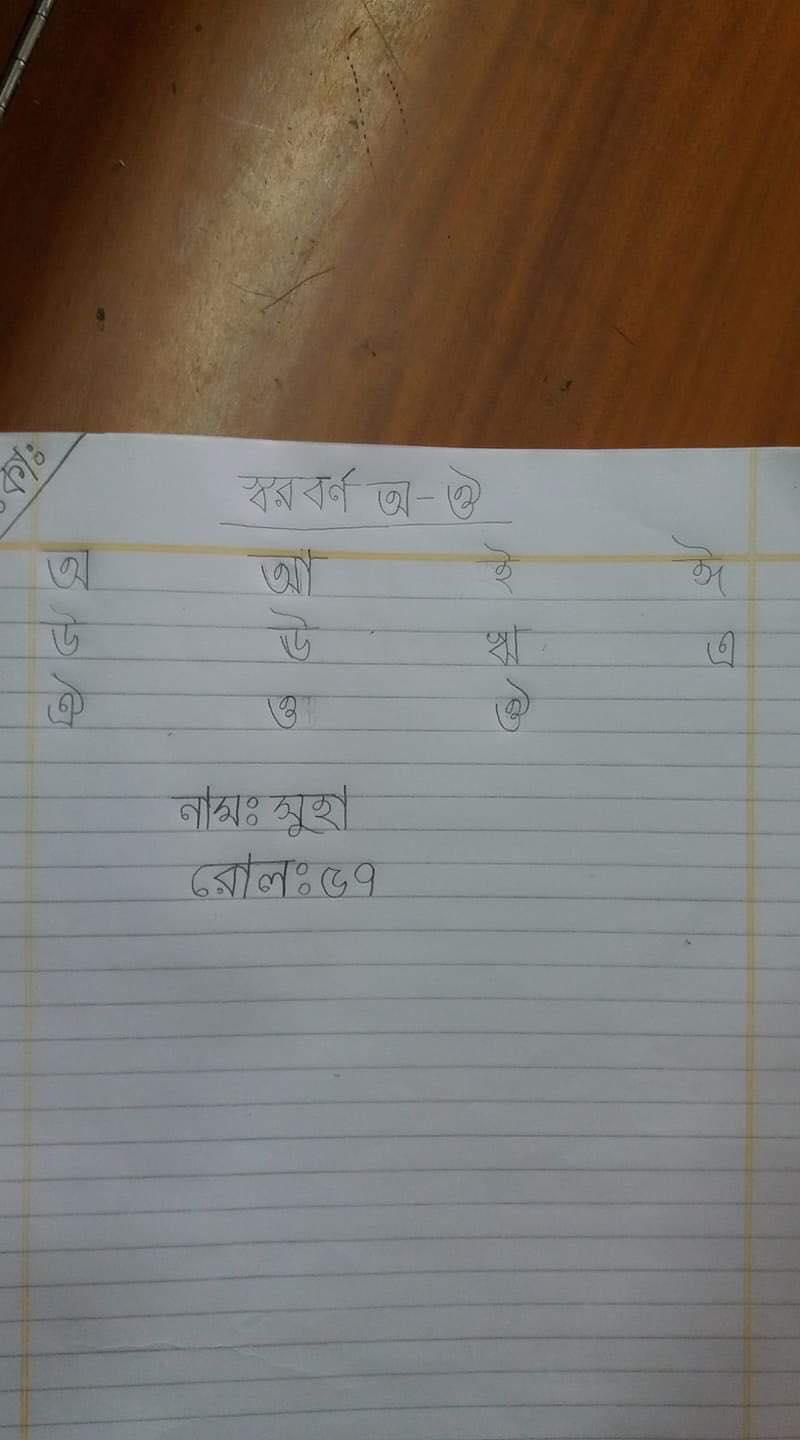 স্বরবর্ণ অ-ঔ
অ আ ই ঈ
উ ঊ ঋ এ
ঐ ও ঔ
নামঃ সুহা
রোলঃ ৬৭